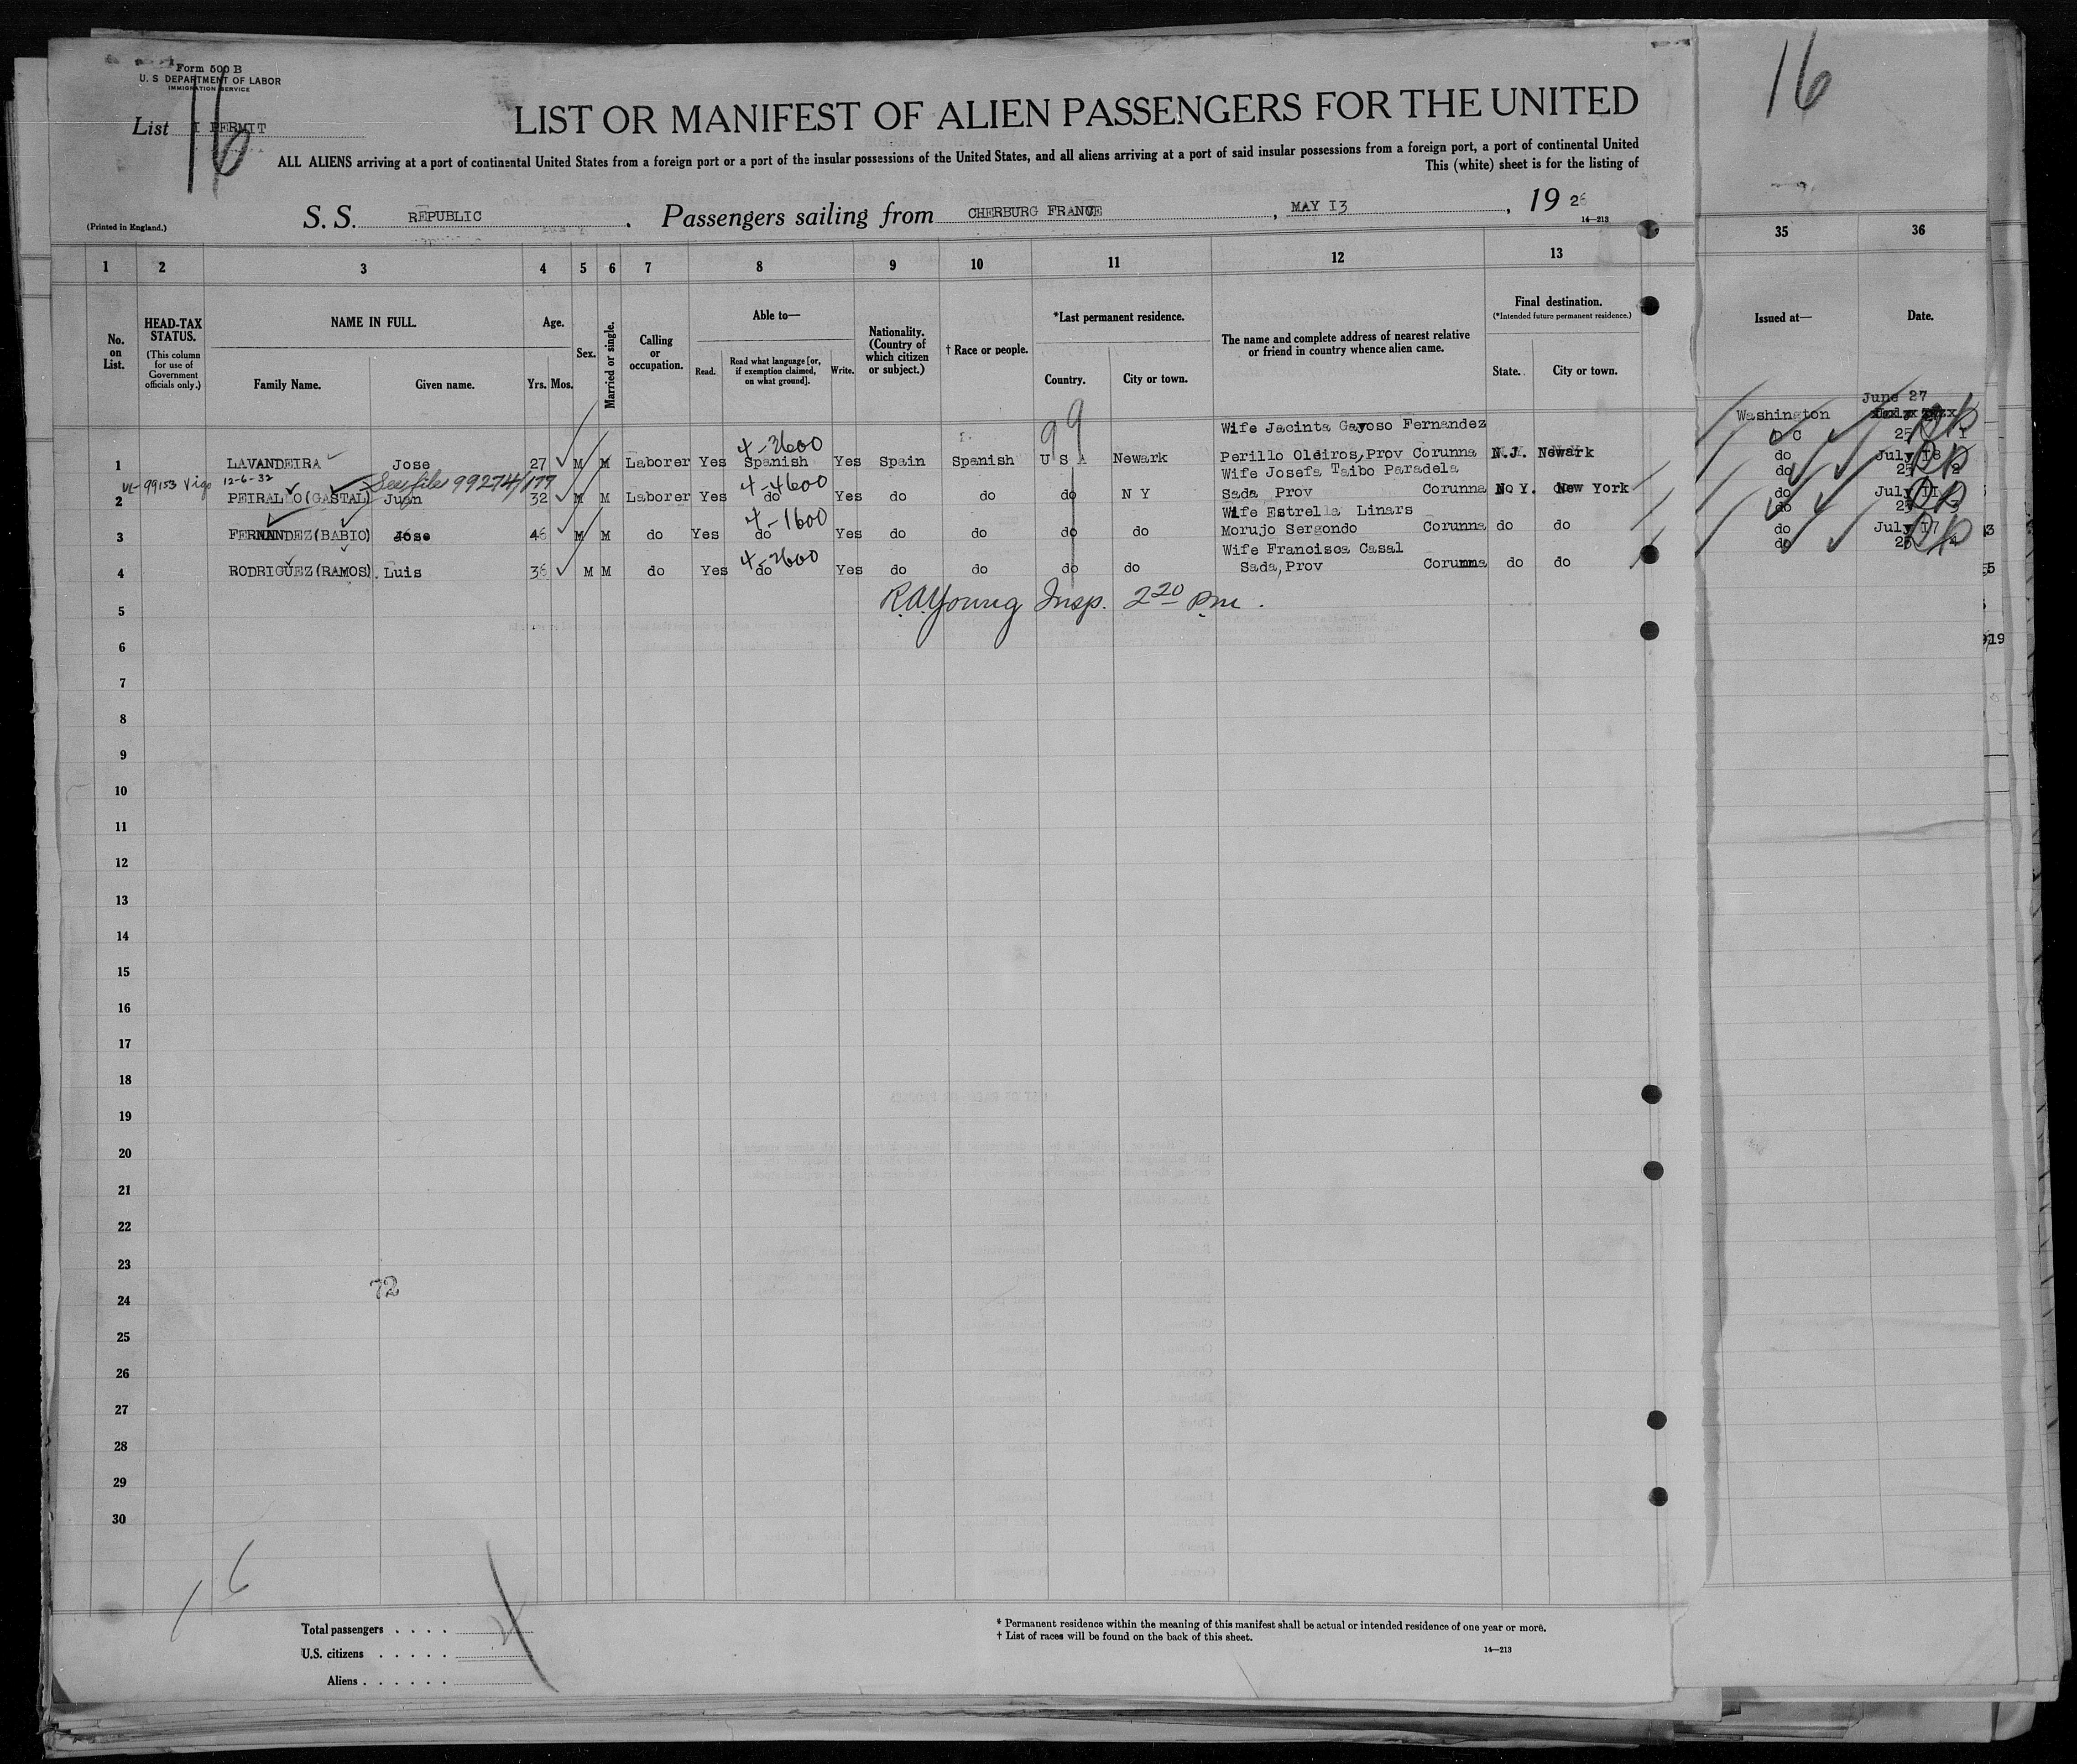 Form 500 B
U. S DEPARTMENT OF LABOR
IMMIGRATION SERVICE
16
16
List I PERMIT
LIST OR MANIFEST OF ALIEN PASSENGERS FOR THE UNITED
ALL ALIENS arriving at a port of continental United States from a foreign port or a port of the insular possessions of the United States, and all aliens arriving at a port of said insular possessions from a foreign port, a port of continental United
This (white) sheet is for the listing of
(Printed in England.)
S. S. REPUBLIC . Passengers sailing from CHERBURG FRANCE , MAY I3 , 19 26
14—213
1 2 3 4 5 6 7 8 9 10 11 12 13 35 36
No. on List.
HEAD-TAX STATUS.
(This column for use of Government officials only.)
NAME IN FULL.
Family Name. Given name.
Age.
Yrs. Mos.
Sex.
Married or single.
Calling or occupation.
Able to—
Read. Read what language [or, if exemption claimed, on what ground]. Write.
Nationality. (Country of which citizen or subject.)
† Race or people.
*Last permanent residence.
Country. City or town.
The name and complete address of nearest relative or friend in country whence alien came.
Final destination.
(*Intended future permanent residence.)
State. City or town.
Issued at— Date.
99
June 27
Wife Jacinta Gayoso Fernandez Washington
4-2600 D C 25 I
1 LAVANDEIRA Jose 27 M M Laborer Yes Spanish Yes Spain Spanish U S A Newark Perillo Oleiros,Prov Corunna N.J. Newark do July I8
VL-99153 Vigo 12-6-32 See file 99274/177 4-4600 Wife Josefa Taibo Paradela do 25 2
2 PEIRALLO(GASTAL) Juan 32 M M Laborer Yes do Yes do do do N Y Sada Prov Corunna N Y. New York do July II
4-1600 Wife Estrella Linars do 25 3
3 FERNANDEZ(BABIO) Jose 46 M M do Yes do Yes do do do do Morujo Sergondo Corunna do do do July I7
4-2600 Wife Francisca Casal do 25 4
4 RODRIGUEZ(RAMOS). Luis 36 M M do Yes do Yes do do do do Sada,Prov Corunna do do
5 R.A.Young Insp. 2 20 pm.
6
7
8
9
10
11
12
13
14
15
16
17
18
19
20
21
22
23
72
24
25
26
27
28
29
30
16
Total passengers . . . .
U.S. citizens . . . . .
Aliens . . . . . .
* Permanent residence within the meaning of this manifest shall be actual or intended residence of one year or more.
† List of races will be found on the back of this sheet.
14—213